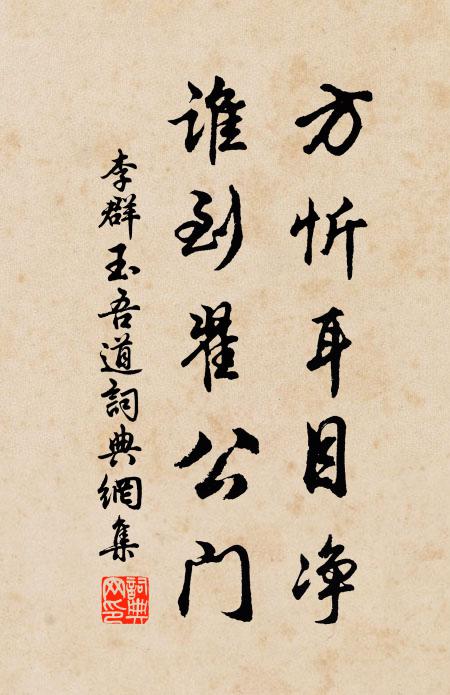 方忻耳目净
谁到翟公门
李群玉吾道詞典網集
詞典网印